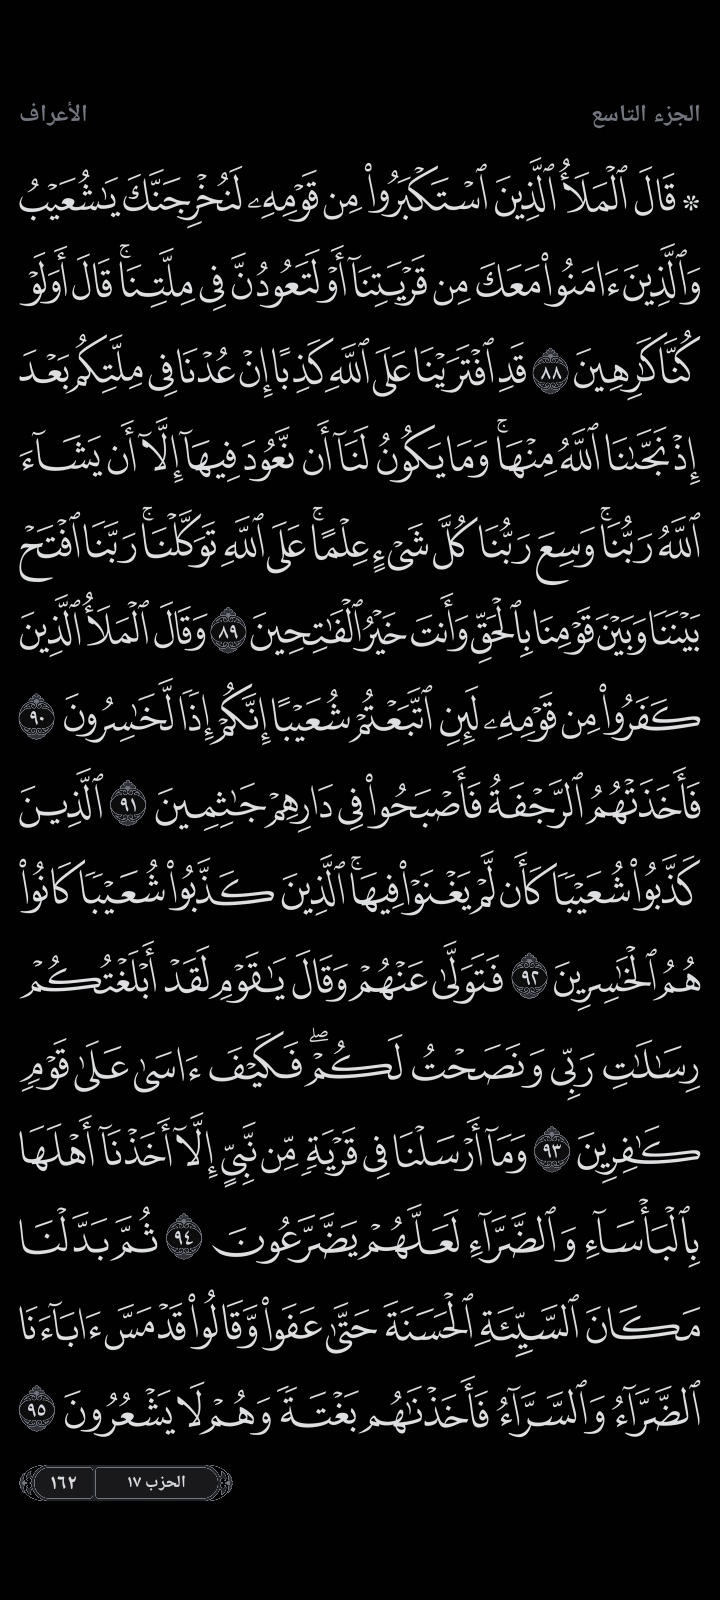 الجزء التاسع
الأعراف
۞ قَالَ ٱلْمَلَأُ ٱلَّذِينَ ٱسْتَكْبَرُوا۟ مِن قَوْمِهِۦ لَنُخْرِجَنَّكَ يَـٰشُعَيْبُ
وَٱلَّذِينَ ءَامَنُوا۟ مَعَكَ مِن قَرْيَتِنَآ أَوْ لَتَعُودُنَّ فِى مِلَّتِنَا ۚ قَالَ أَوَلَوْ
كُنَّا كَـٰرِهِينَ ٨٨ قَدِ ٱفْتَرَيْنَا عَلَى ٱللَّهِ كَذِبًا إِنْ عُدْنَا فِى مِلَّتِكُم بَعْدَ
إِذْ نَجَّىٰنَا ٱللَّهُ مِنْهَا ۚ وَمَا يَكُونُ لَنَآ أَن نَّعُودَ فِيهَآ إِلَّآ أَن يَشَآءَ
ٱللَّهُ رَبُّنَا ۚ وَسِعَ رَبُّنَا كُلَّ شَىْءٍ عِلْمًا ۚ عَلَى ٱللَّهِ تَوَكَّلْنَا ۚ رَبَّنَا ٱفْتَحْ
بَيْنَنَا وَبَيْنَ قَوْمِنَا بِٱلْحَقِّ وَأَنتَ خَيْرُ ٱلْفَـٰتِحِينَ ٨٩ وَقَالَ ٱلْمَلَأُ ٱلَّذِينَ
كَفَرُوا۟ مِن قَوْمِهِۦ لَئِنِ ٱتَّبَعْتُمْ شُعَيْبًا إِنَّكُمْ إِذًا لَّخَـٰسِرُونَ ٩٠
فَأَخَذَتْهُمُ ٱلرَّجْفَةُ فَأَصْبَحُوا۟ فِى دَارِهِمْ جَـٰثِمِينَ ٩١ ٱلَّذِينَ
كَذَّبُوا۟ شُعَيْبًا كَأَن لَّمْ يَغْنَوْا۟ فِيهَا ۚ ٱلَّذِينَ كَذَّبُوا۟ شُعَيْبًا كَانُوا۟
هُمُ ٱلْخَـٰسِرِينَ ٩٢ فَتَوَلَّىٰ عَنْهُمْ وَقَالَ يَـٰقَوْمِ لَقَدْ أَبْلَغْتُكُمْ
رِسَـٰلَـٰتِ رَبِّى وَنَصَحْتُ لَكُمْ ۖ فَكَيْفَ ءَاسَىٰ عَلَىٰ قَوْمٍ
كَـٰفِرِينَ ٩٣ وَمَآ أَرْسَلْنَا فِى قَرْيَةٍ مِّن نَّبِىٍّ إِلَّآ أَخَذْنَآ أَهْلَهَا
بِٱلْبَأْسَآءِ وَٱلضَّرَّآءِ لَعَلَّهُمْ يَضَّرَّعُونَ ٩٤ ثُمَّ بَدَّلْنَا
مَكَانَ ٱلسَّيِّئَةِ ٱلْحَسَنَةَ حَتَّىٰ عَفَوا۟ وَّقَالُوا۟ قَدْ مَسَّ ءَابَآءَنَا
ٱلضَّرَّآءُ وَٱلسَّرَّآءُ فَأَخَذْنَـٰهُم بَغْتَةً وَهُمْ لَا يَشْعُرُونَ ٩٥
الحزب ١٧
١٦٢